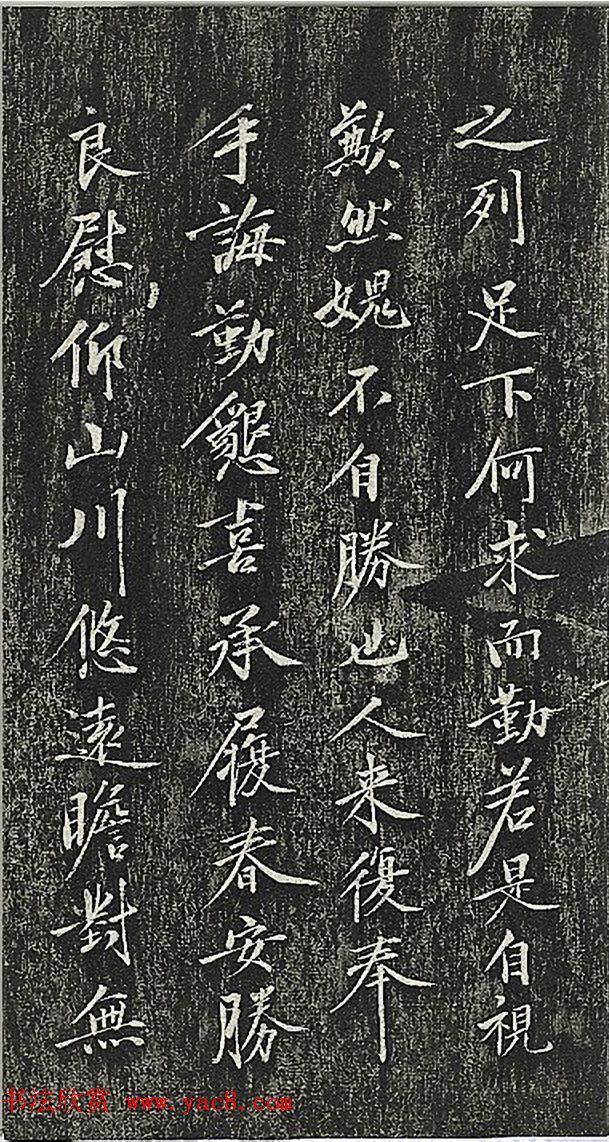 之列足下何求而勤若是自視
歉然媿不自勝山人来復奉
手誨勤懇喜承履春安勝
良慰仰山川悠遠瞻對無
书法欣赏 www.yac8.com